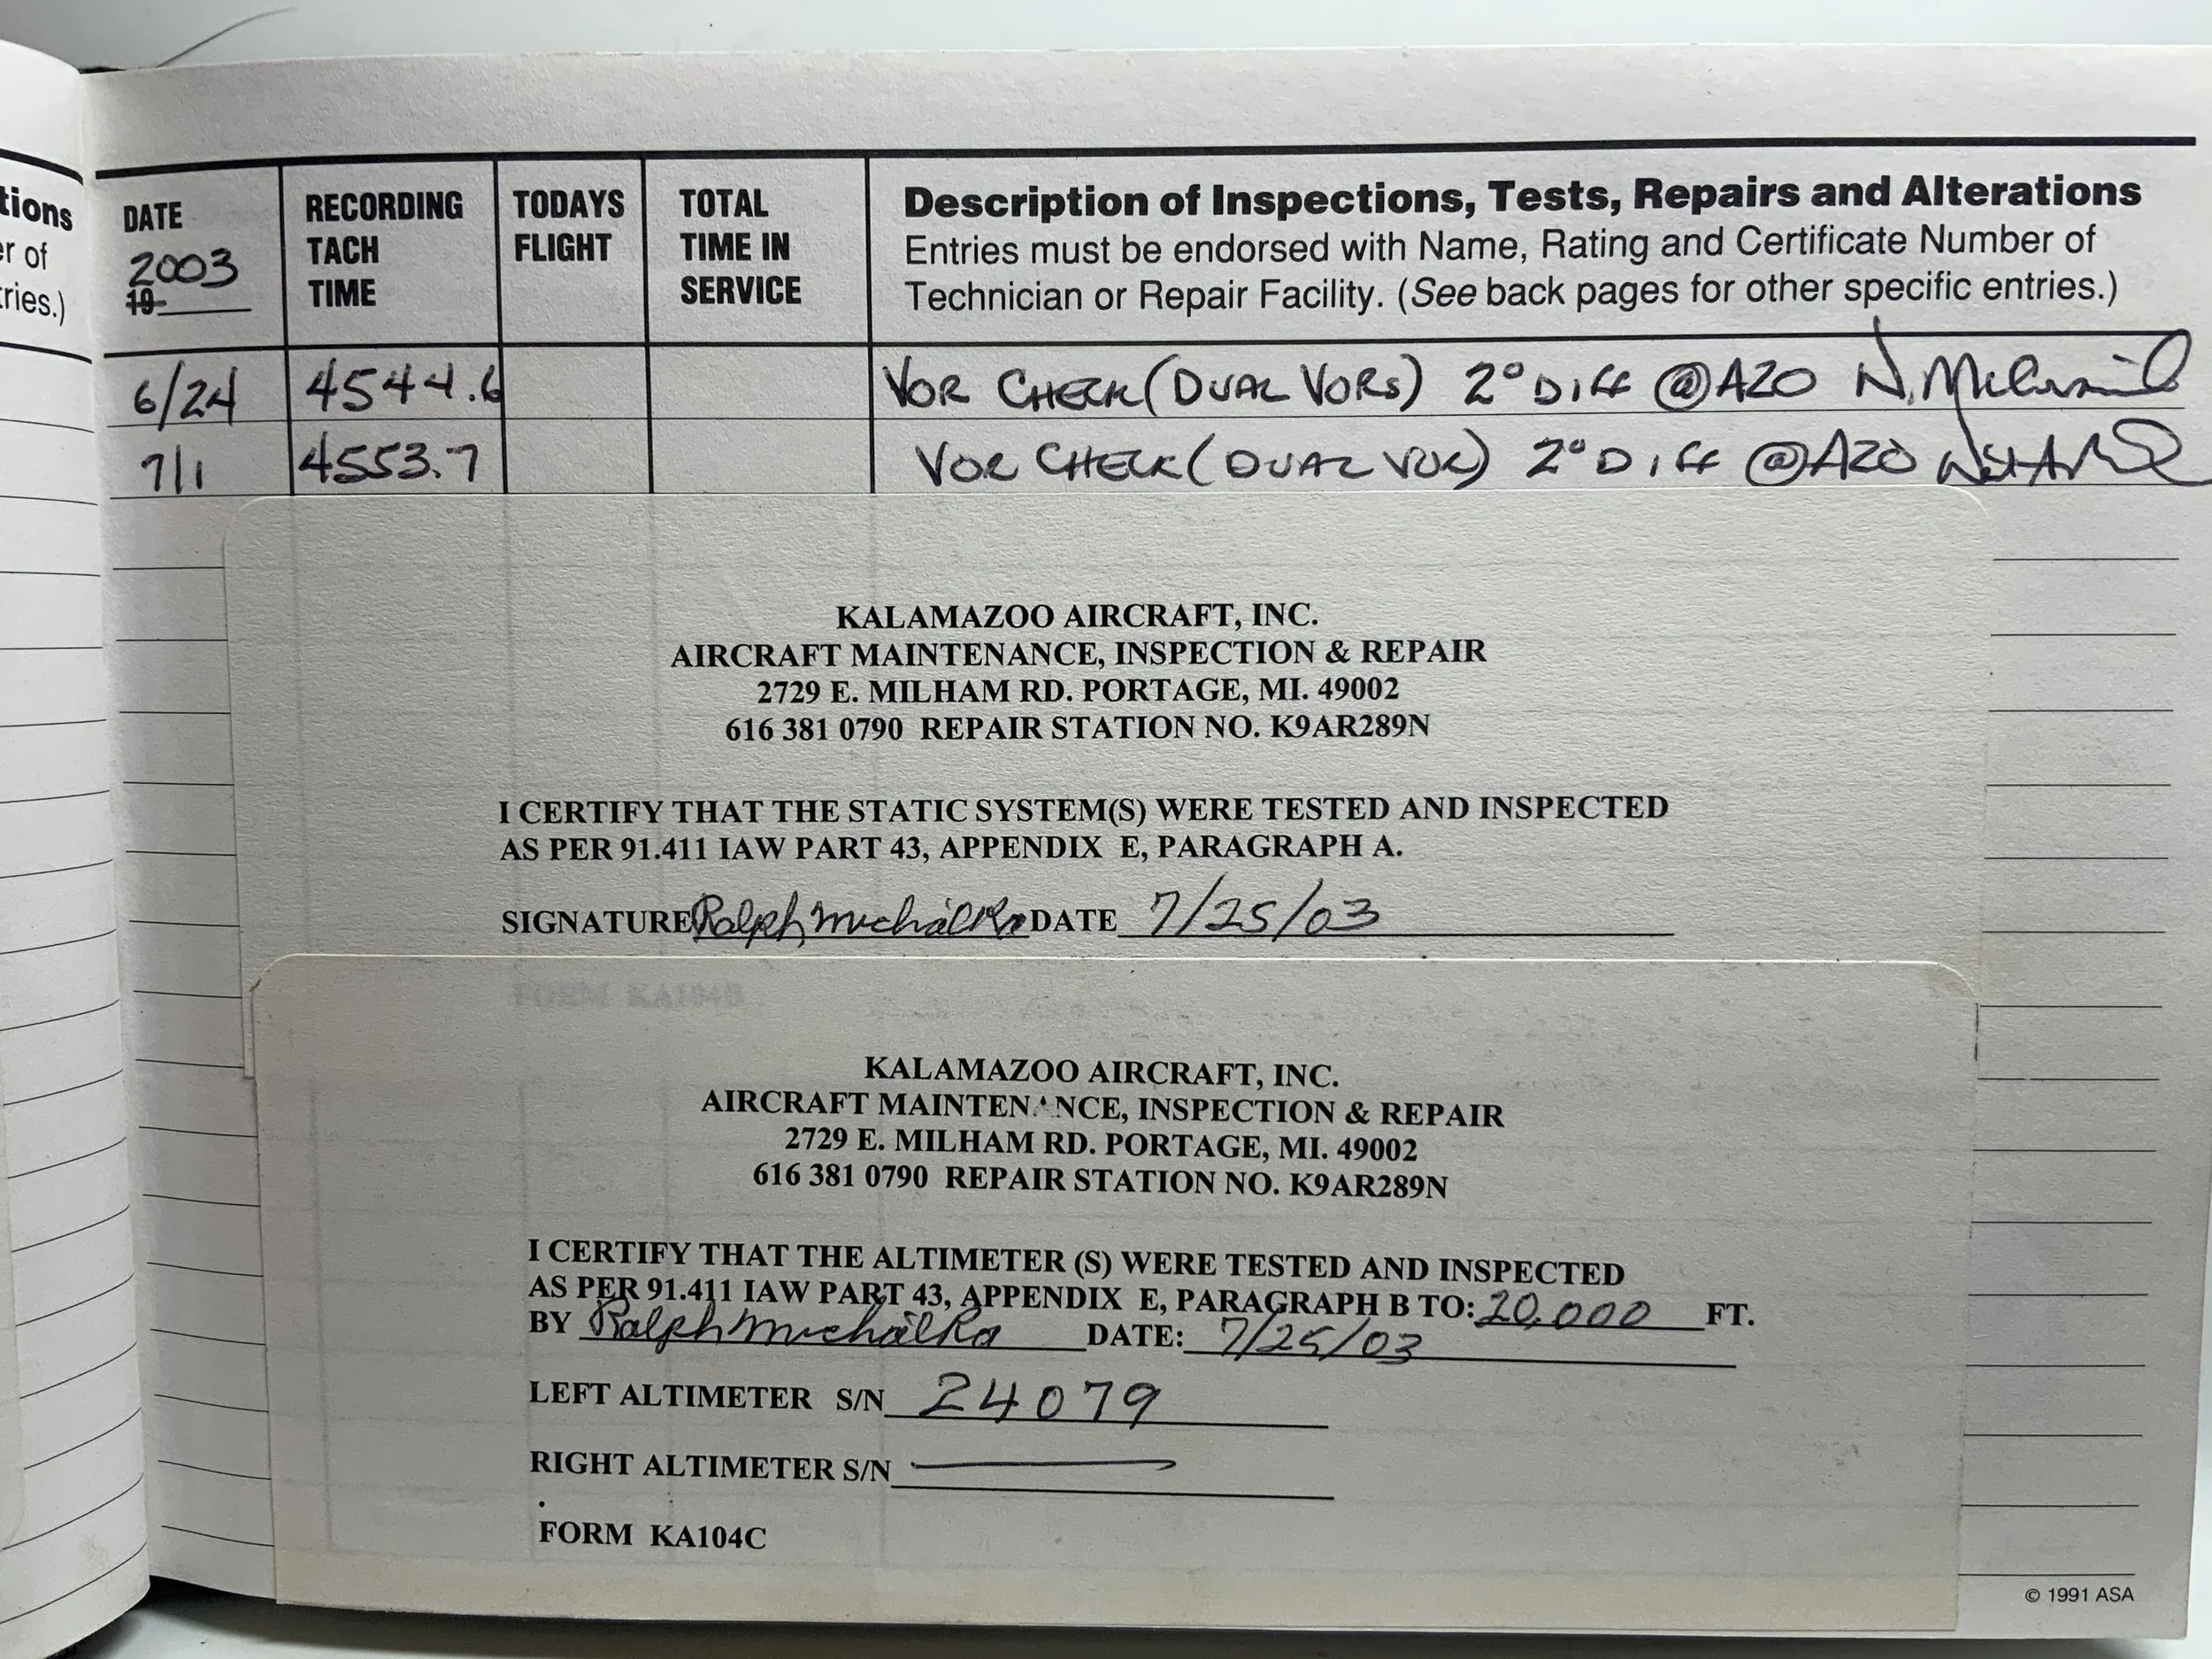 tions
er of
tries.)
DATE
2003
19
RECORDING
TACH
TIME
TODAYS
FLIGHT
TOTAL
TIME IN
SERVICE
Description of Inspections, Tests, Repairs and Alterations
Entries must be endorsed with Name, Rating and Certificate Number of
Technician or Repair Facility. (See back pages for other specific entries.)
6/24 4544.6 VOR CHECK (DUAL VORS) 2° DIFF @ AZO
7/1 4553.7 VOR CHECK (DUAL VOR) 2° DIFF @ AZO
KALAMAZOO AIRCRAFT, INC.
AIRCRAFT MAINTENANCE, INSPECTION & REPAIR
2729 E. MILHAM RD. PORTAGE, MI. 49002
616 381 0790 REPAIR STATION NO. K9AR289N
I CERTIFY THAT THE STATIC SYSTEM(S) WERE TESTED AND INSPECTED
AS PER 91.411 IAW PART 43, APPENDIX E, PARAGRAPH A.
SIGNATURE Ralph Michalka DATE 7/25/03
FORM KA104B
KALAMAZOO AIRCRAFT, INC.
AIRCRAFT MAINTENANCE, INSPECTION & REPAIR
2729 E. MILHAM RD. PORTAGE, MI. 49002
616 381 0790 REPAIR STATION NO. K9AR289N
I CERTIFY THAT THE ALTIMETER (S) WERE TESTED AND INSPECTED
AS PER 91.411 IAW PART 43, APPENDIX E, PARAGRAPH B TO: 20,000 FT.
BY Ralph Michalka DATE: 7/25/03
LEFT ALTIMETER S/N 24079
RIGHT ALTIMETER S/N —
FORM KA104C
© 1991 ASA